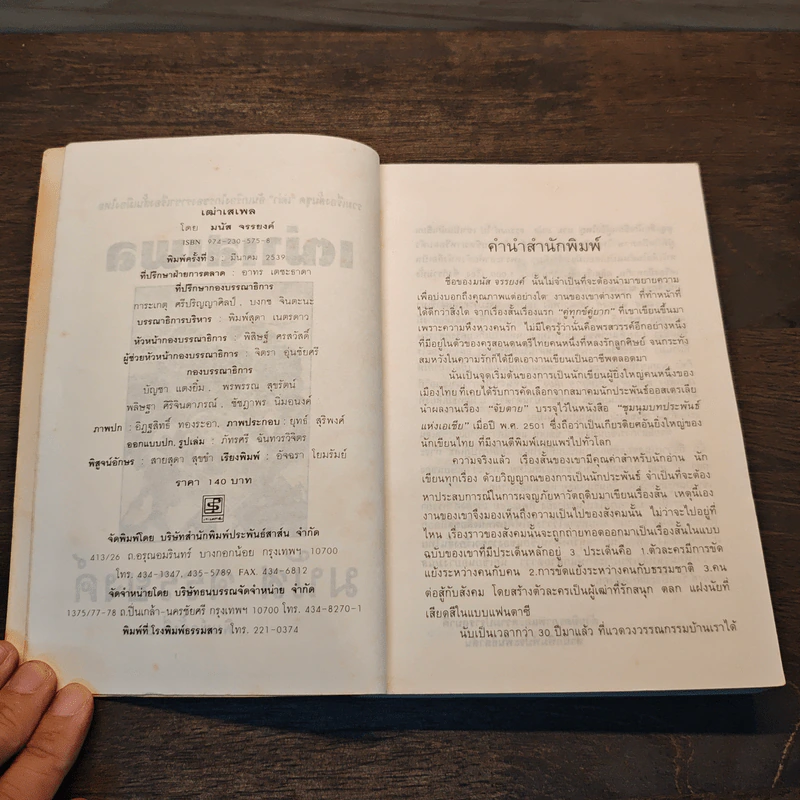 เฒ่าเสเพล
โดย มนัส จรรยงค์
ISBN 974-230-575-8
พิมพ์ครั้งที่ 3 : มีนาคม 2539
ที่ปรึกษาฝ่ายการตลาด : อาทร เตชะธาดา
ที่ปรึกษากองบรรณาธิการ
การะเกตุ ศรีปริญญาศิลป์, บงกช จินตะนะ
บรรณาธิการบริหาร : พิมพ์สุดา เนตรดาว
หัวหน้ากองบรรณาธิการ : พิสิษฐ์ ศรสวัสดิ์
ผู้ช่วยหัวหน้ากองบรรณาธิการ : จิตรา อุ่นชัยศรี
กองบรรณาธิการ
บัญชา แตงยิ้ม, พรพรรณ สุขรัตน์
พลิษฐา ศิริจินดาภรณ์, ชัชฎาพร นิมอนงค์
ภาพปก : อิฏฐสิทธิ์ ทองระอา, ภาพประกอบ : ยุทธ์ สุริพงค์
ออกแบบปก, รูปเล่ม : ภัทรศรี ฉันทวรวิจิตร
พิสูจน์อักษร : สายสุดา สุขขำ เรียงพิมพ์ : อัจฉรา โยมรัมย์
ราคา 140 บาท
จัดพิมพ์โดย บริษัทสำนักพิมพ์ประพันธ์สาส์น จำกัด
413/26 ถ.อรุณอมรินทร์ บางกอกน้อย กรุงเทพฯ 10700
โทร. 434-1347, 435-5789 FAX. 434-6812
จัดจำหน่ายโดย บริษัทธนบรรณจัดจำหน่าย จำกัด
1375/77-78 ถ.ปิ่นเกล้า-นครชัยศรี กรุงเทพฯ 10700 โทร. 434-8270-1
พิมพ์ที่ โรงพิมพ์ธรรมสาร โทร. 221-0374
คำนำสำนักพิมพ์
ชื่อของมนัส จรรยงค์ นั้นไม่จำเป็นที่จะต้องนำมาขยายความ
เพื่อบ่งบอกถึงคุณภาพแต่อย่างใด งานของเขาต่างหาก ที่ทำหน้าที่
ได้ดีกว่าสิ่งใด จากเรื่องสั้นเรื่องแรก "คู่ทุกข์คู่ยาก" ที่เขาเขียนขึ้นมา
เพราะความหึงหวงคนรัก ไม่มีใครรู้ว่านั่นคือพรสวรรค์อีกอย่างหนึ่ง
ที่มีอยู่ในตัวของครูสอนดนตรีไทยคนหนึ่งที่หลงรักลูกศิษย์ จนกระทั่ง
สมหวังในความรักก็ได้ยึดเอางานเขียนเป็นอาชีพตลอดมา
นั่นเป็นจุดเริ่มต้นของการเป็นนักเขียนผู้ยิ่งใหญ่คนหนึ่งของ
เมืองไทย ที่เคยได้รับการคัดเลือกจากสมาคมนักประพันธ์ออสเตรเลีย
นำผลงานเรื่อง "จับตาย" บรรจุไว้ในหนังสือ "ชุมนุมบทประพันธ์
แห่งเอเชีย" เมื่อปี พ.ศ. 2501 ซึ่งถือว่าเป็นเกียรติยศอันยิ่งใหญ่ของ
นักเขียนไทย ที่มีงานตีพิมพ์เผยแพร่ไปทั่วโลก
ความจริงแล้ว เรื่องสั้นของเขามีคุณค่าสำหรับนักอ่าน นัก
เขียนทุกเรื่อง ด้วยวิญญาณของการเป็นนักประพันธ์ จำเป็นที่จะต้อง
หาประสบการณ์ในการผจญภัยหาวัตถุดิบมาเขียนเรื่องสั้น เหตุนี้เอง
งานของเขาจึงมองเห็นถึงความเป็นไปของสังคมนั้น ไม่ว่าจะไปอยู่ที่
ไหน เรื่องราวของสังคมนั้นจะถูกถ่ายทอดออกมาเป็นเรื่องสั้นในแบบ
ฉบับของเขาที่มีประเด็นหลักอยู่ 3 ประเด็นคือ 1.ตัวละครมีการขัด
แย้งระหว่างคนกับคน 2.การขัดแย้งระหว่างคนกับธรรมชาติ 3.คน
ต่อสู้กับสังคม โดยสร้างตัวละครเป็นผู้เฒ่าที่รักสนุก ตลก แฝงนัยที่
เสียดสีในแบบแฟนตาซี
นับเป็นเวลากว่า 30 ปีมาแล้ว ที่แวดวงวรรณกรรมบ้านเราได้